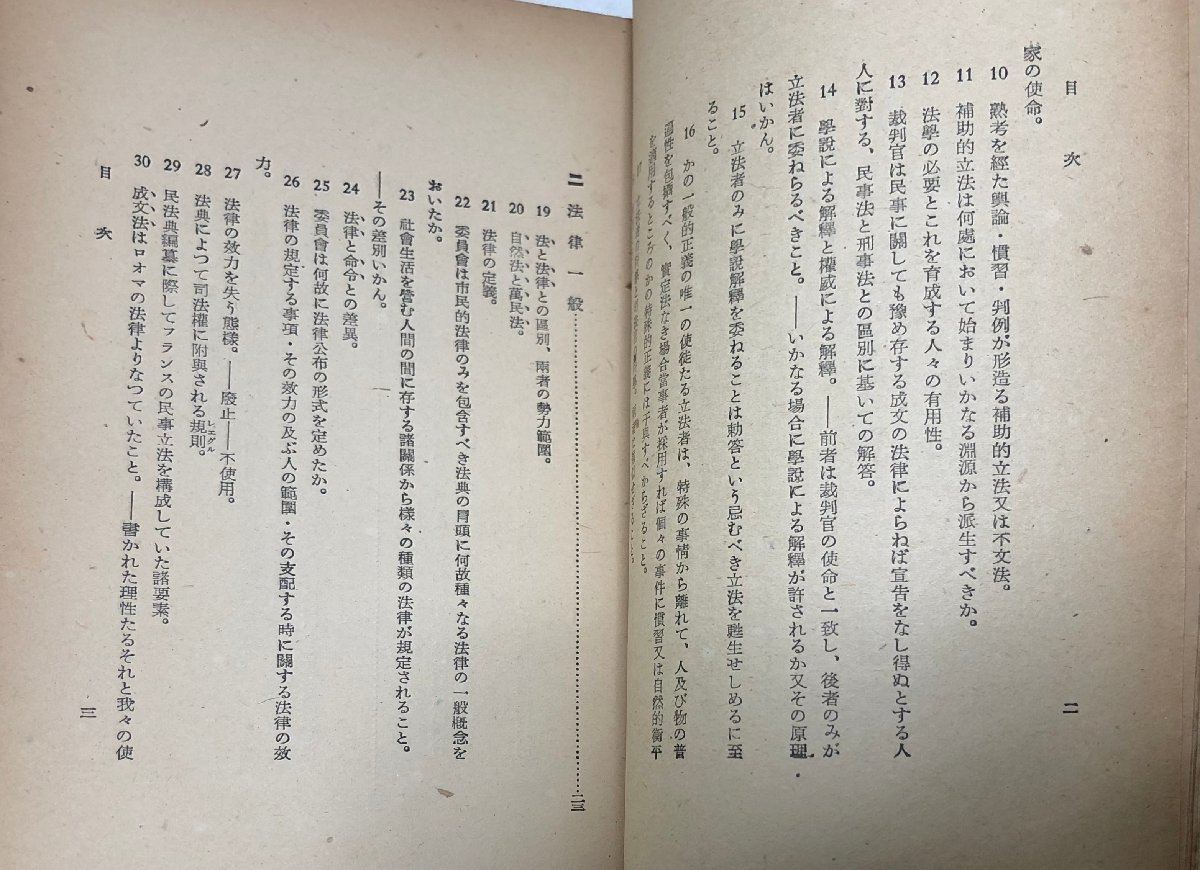 目次
二
家の使命。
10 熟考を經た輿論・慣習・判例が形造る補助的立法又は不文法。
11 補助的立法は何處において始まりいかなる淵源から派生すべきか。
12 法學の必要とこれを育成する人々の有用性。
13 裁判官は民事に關しても豫め存する成文の法律によらねば宣告をなし得ぬとする人
人に對する、民事法と刑事法との區別に基いての解答。
14 學説による解釋と權威による解釋。――前者は裁判官の使命と一致し、後者のみが
立法者に委ねらるべきこと。――いかなる場合に學説による解釋が許されるか又その原理
はいかん。
15 立法者のみに學説解釋を委ねることは勅答という忌むべき立法を甦生せしめるに至
ること。
16 かの一般的正義の唯一の使徒たる立法者は、特殊の事情から離れて、人及び物の普
遍性を包攝すべく、實定法なき場合當事者が採用すれば個々の事件に慣習又は自然的衡平
を適用するところのかの特殊的正義には干與すべからざること。
二 法律一般……二三
19 法と法律との區別、兩者の勢力範圍。
20 自然法と萬民法。
21 法律の定義。
22 委員會は市民的法律のみを包含すべき法典の冒頭に何故種々なる法律の一般概念を
おいたか。
23 社會生活を營む人間の間に存する諸關係から樣々の種類の法律が規定されること。
――その差別いかん。
24 法律と命令との差異。
25 委員會は何故に法律公布の形式を定めたか。
26 法律の規定する事項・その效力の及ぶ人の範圍・その支配する時に關する法律の效
力。
27 法律の效力を失う態樣。――廢止――不使用。
28 法典によつて司法權に附與される規則。
レエグル
29 民法典編纂に際してフランスの民事立法を構成していた諸要素。
30 成文法はロオマの法律よりなつていたこと。――書かれた理性たるそれと我々の使
目次
三